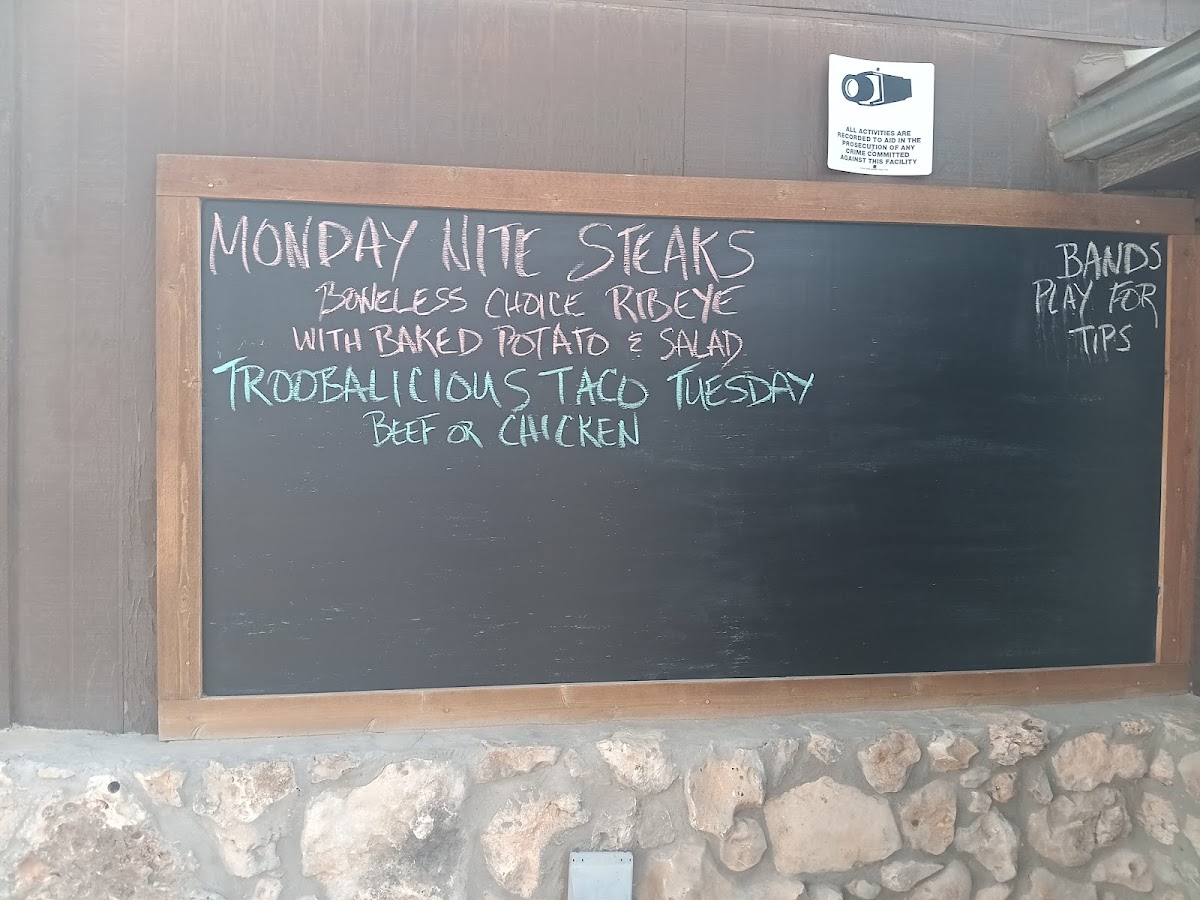 ALL ACTIVITIES ARE
RECORDED TO AID IN THE
PROSECUTION OF ANY
CRIME COMMITTED
AGAINST THIS FACILITY
MONDAY NITE STEAKS
BONELESS CHOICE RIBEYE
WITH BAKED POTATO & SALAD
TROOBALICIOUS TACO TUESDAY
BEEF OR CHICKEN
BANDS
PLAY FOR
TIPS